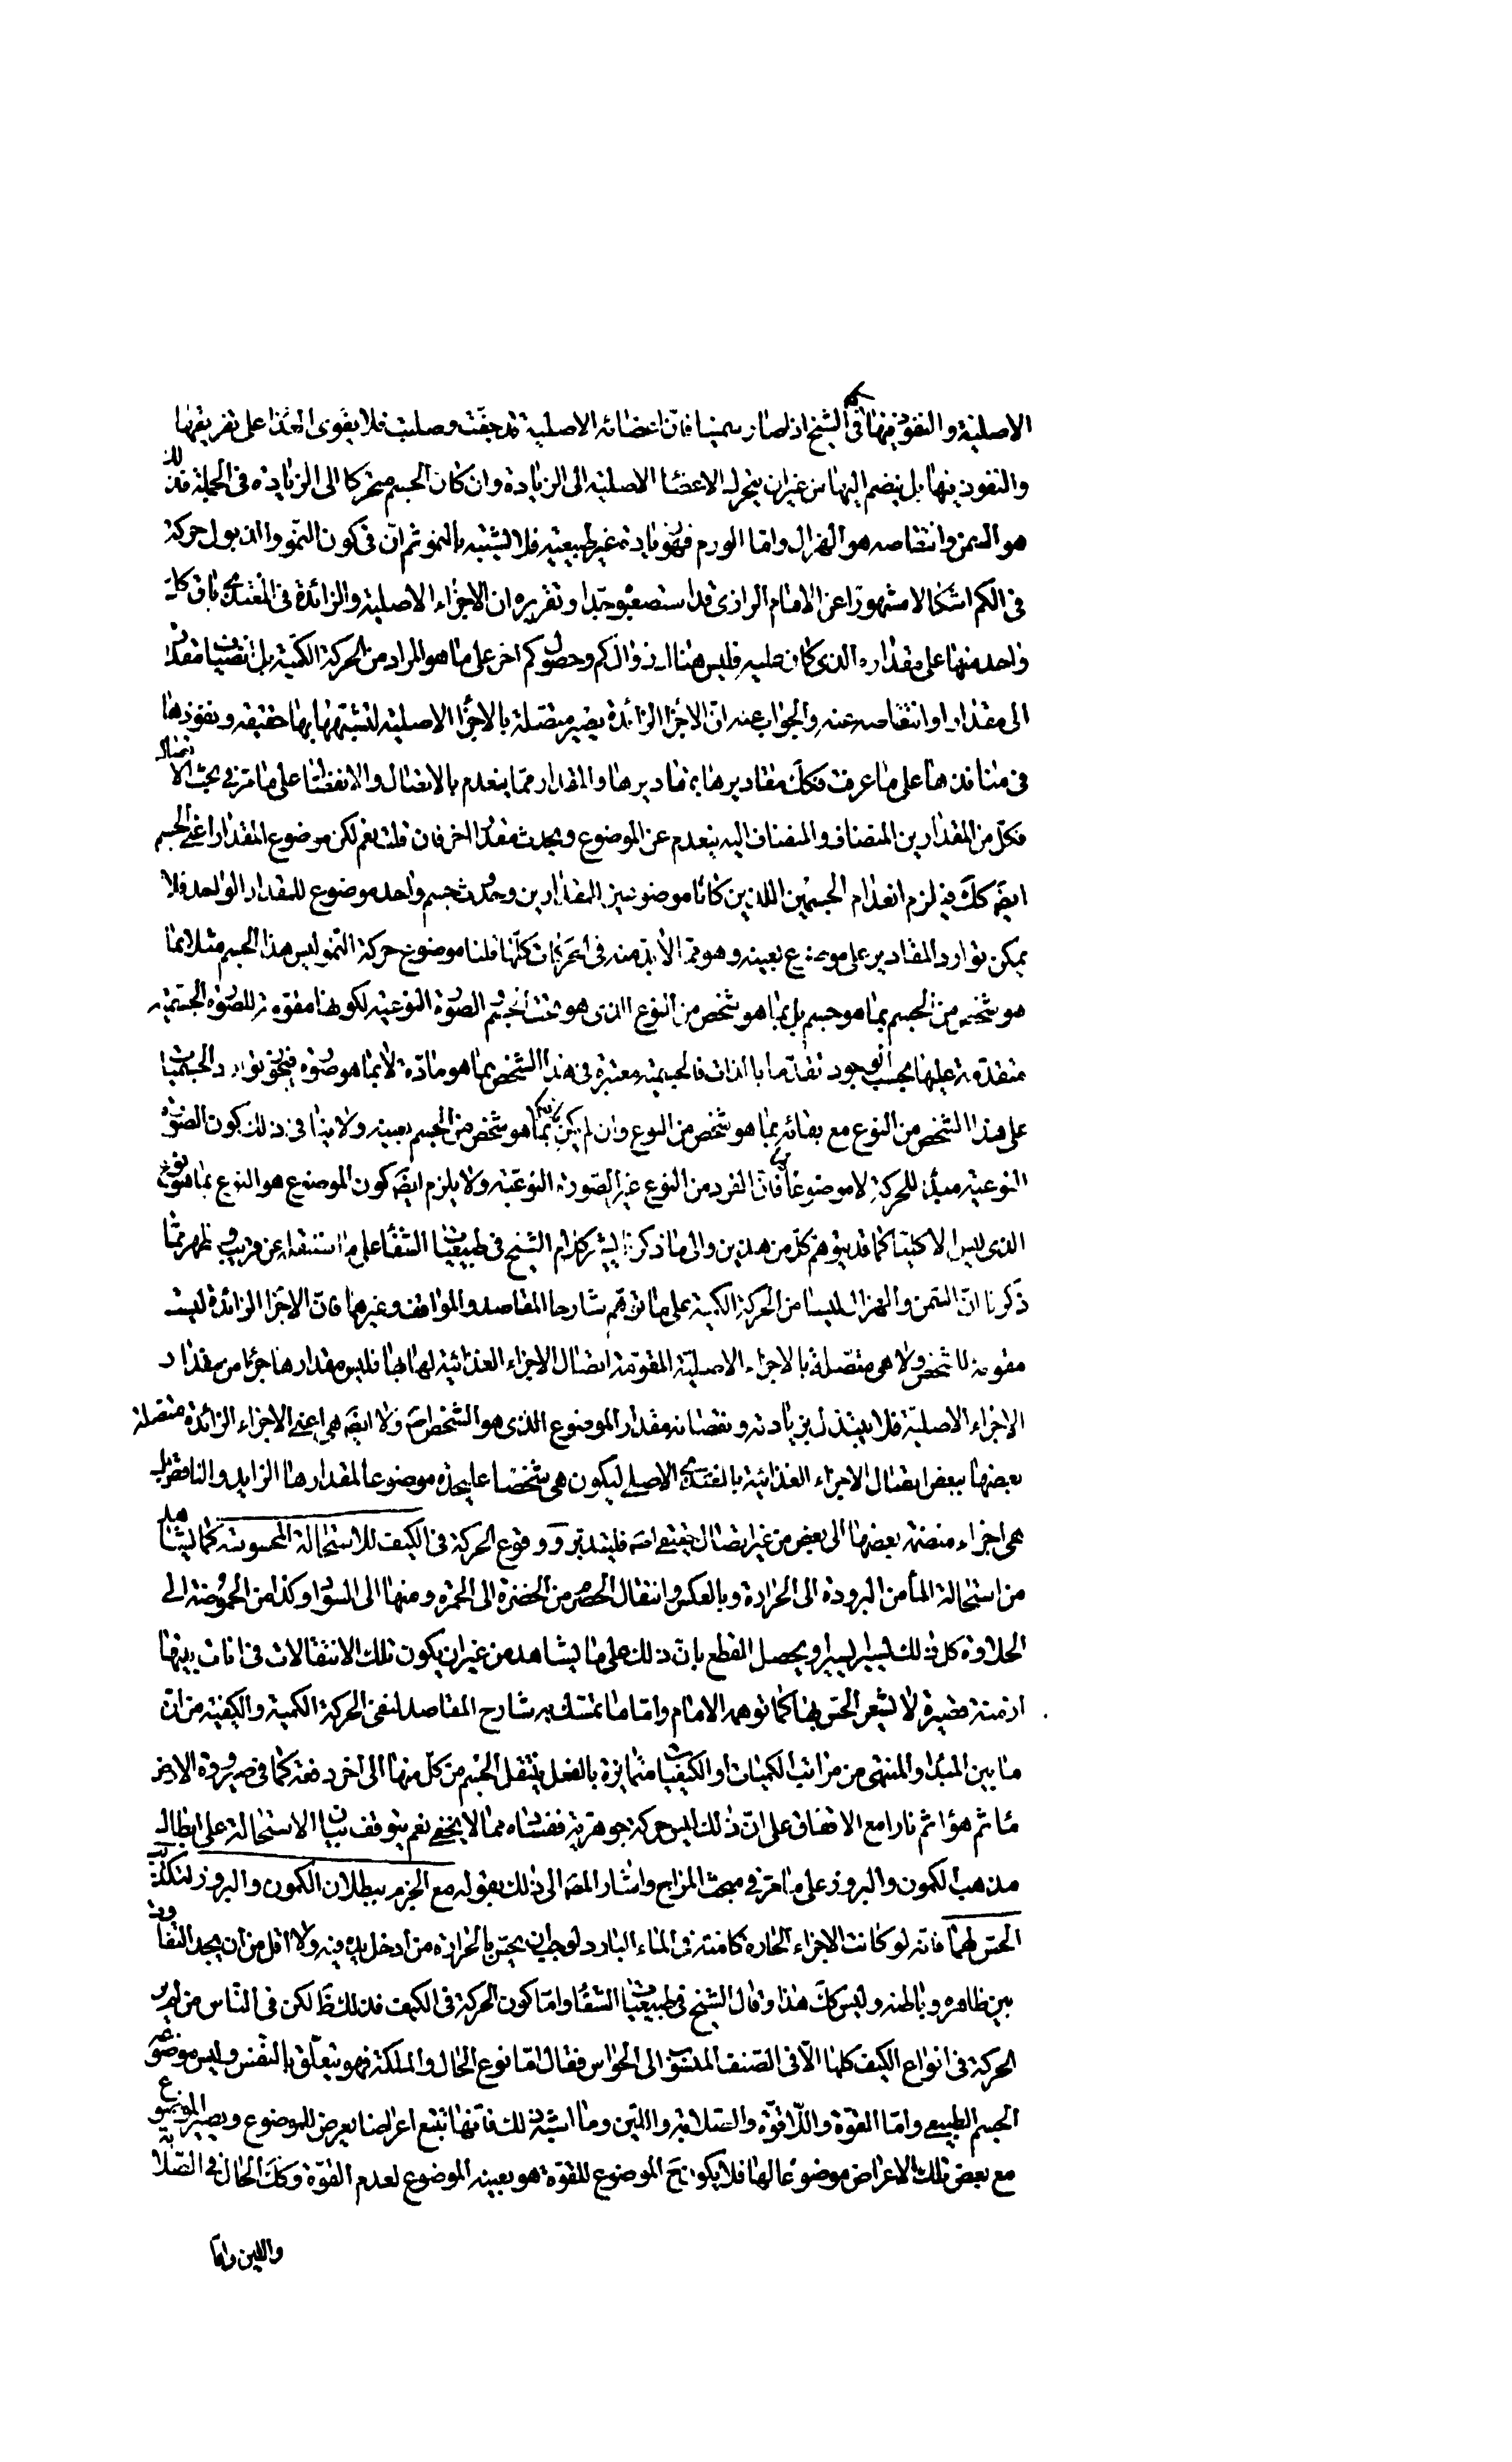 الاصلية والنفوذ فيها فى الشيخ اذا صار سمينا فان اعضائه الاصلية قد جفّت وصلبت فلا يقوى الغذا على تفريقها
والنفوذ فيها بل ينضم اليها من غير ان يتحرك الاعضا الاصلية الى الزيادة وان كان الجسم متحركا الى الزيادة فى الجملة فذلك
هو السمن وانتقاصه هو الهزال واما الورم فهو زيادة غير طبيعية فلا يشتبه بالنمو ثم ان فى كون النمو والذبول حركة
فى الكم اشكالا مشهورا عن الامام الرازى قد استصعبوه جدا وتقريره ان الاجزاء الاصلية والزائدة فى المغتذى باق كل
واحد منها على مقداره الذى كان عليه فليس هنا زوال كم وحصول كم اخر على ما هو المراد من الحركة الكمية بل انضياف مقدار
الى مقدار او انتقاصه عنه والجواب عنه ان الاجزا الزائدة يصير متصلة بالاجزا الاصلية لتشبهها بها حقيقة ونفوذها
فى منافذها على ما عرفت فكك مقاديرها بمقاديرها والمقدار مما ينعدم بالاتصال والانفصال على ما مر فى بحث الاتصال
فكل من المقدارين المضاف والمضاف اليه ينعدم عن الموضوع ويحدث مقدار اخر فان قلت نعم لكن موضوع المقدار اعنى الجسم
ايضَ كك فيلزم انعدام الجسمين اللذين كانا موضوعين للمقدارين وحدوث جسم واحد موضوع للمقدار الواحد فلا
يمكن توارد المقادير على موضوع بعينه وهو مما لابد منه فى الحركات كلها قلنا موضوع حركة النمو ليس هذا الجسم مثلا بما
هو شخص من الجسم بما هو جسم بل بما هو شخص من النوع الذى هو تحت الجسم الصورة النوعية لكونها مقومة للصورة الجسمية
متقدمة عليها بحسب الوجود تقدما بالذات فالجسمية معتبرة فى هذا الشخص بما هو مادة لا بما هو صورة فيجوز توارد الجسميات
على هذا الشخص من النوع مع بقائه بما هو شخص من النوع وان لم يكن بما هو شخص من الجسم بعينه ولا ينافى ذلك كون الصورة
النوعية مبدأ للحركة لا موضوعا فان الفرد من النوع غير الصورة النوعية ولا يلزم ايضَ كون الموضوع هو النوع بما هو نوع
الذى ليس الا كليا كما قد يتوهم كل من هذين والى ما ذكرنا يشير كلام الشيخ فى طبيعيات الشفا على ما سننقله عن قريب وظهر مما
ذكرنا ان السمن والهزال ليسا من الحركة الكمية على ما توهم شارحا المقاصد والمواقف وغيرهما فان الاجزا الزائدة ليست
مقومة للشخص ولا هى متصلة بالاجزاء الاصلية المقومة اتصال الاجزاء الغذائية لها بها فليس مقدارها جزئا من مقدار
الاجزاء الاصلية فلا يتبدل بزيادته ونقصانه مقدار الموضوع الذى هو الشخص اصَ ولا ايضَ هى اعنى الاجزاء الزائدة متصلة
بعضها ببعض اتصال الاجزاء الغذائية بالمغتذى الاصلى ليكون هى شخصا على حدة موضوعا لمقدارها الزايد والناقص بل
هى اجزاء منضمة بعضها الى بعض من غير اتصال حقيقى اصَ فليتدبر ووقوع الحركة فى الكيف للاستحالة المحسوسة كما يشاهد
من استحالة الماء من البرودة الى الحرارة وبالعكس وانتقال الحصرم من الخضرة الى الحمرة ومنها الى السواد وكذا من الحموضة الى
الحلاوة كل ذلك يسيرا يسيرا ويحصل القطع بان ذلك على ما يشاهد من غير ان يكون تلك الانتقالات فى انات بينها
ازمنة قصيرة لا يشعر الحس بها كما توهمه الامام واما ما تمسك به شارح المقاصد لنفى الحركة الكمية والكيفية من ان
ما بين المبدا والمنتهى من مراتب الكميات او الكيفيات متمايزة بالفعل ينتقل الجسم من كل منها الى اخر دفعة كما فى صيرورة الارض
مائا ثم هوا ثم نارا مع الاتفاق على ان ذلك ليس حركة جوهرية ففساده مما لا يخفى نعم يتوقف بيان الاستحالة على ابطال
مذهب الكمون والبروز على ما مر فى مبحث المزاج واشار المصَ الى ذلك بقوله مع الجزم ببطلان الكمون والبروز لتكذيب
الحس لهما فانه لو كانت الاجزاء الحارة كامنة فى الماء البارد لوجب ان يحس بالحرارة من ادخل يده فيه ولا اقل من ان يجد التفاوت
بين ظاهره وباطنه وليس كك هذا وقال الشيخ فى طبيعيات الشفا واما كون الحركة فى الكيف فذلك ظَ لكن فى الناس من لم ير
الحركة فى انواع الكيف كلها الا فى الصنف المنسوب الى الحواس فقال اما نوع الحال والملكة فهو يتعلق بالنفس وليس موضوعه
الجسم الطبيعى واما القوة واللاقوة والصلابة واللين وما اشبه ذلك فانها تتبع اعراضا يعرض للموضوع ويصير الموضوع
مع بعض تلك الاعراض موضوعا لها فلا يكون حَ الموضوع للقوة هو بعينه الموضوع لعدم القوة وكك الحال فى الصلابة
واللين واما